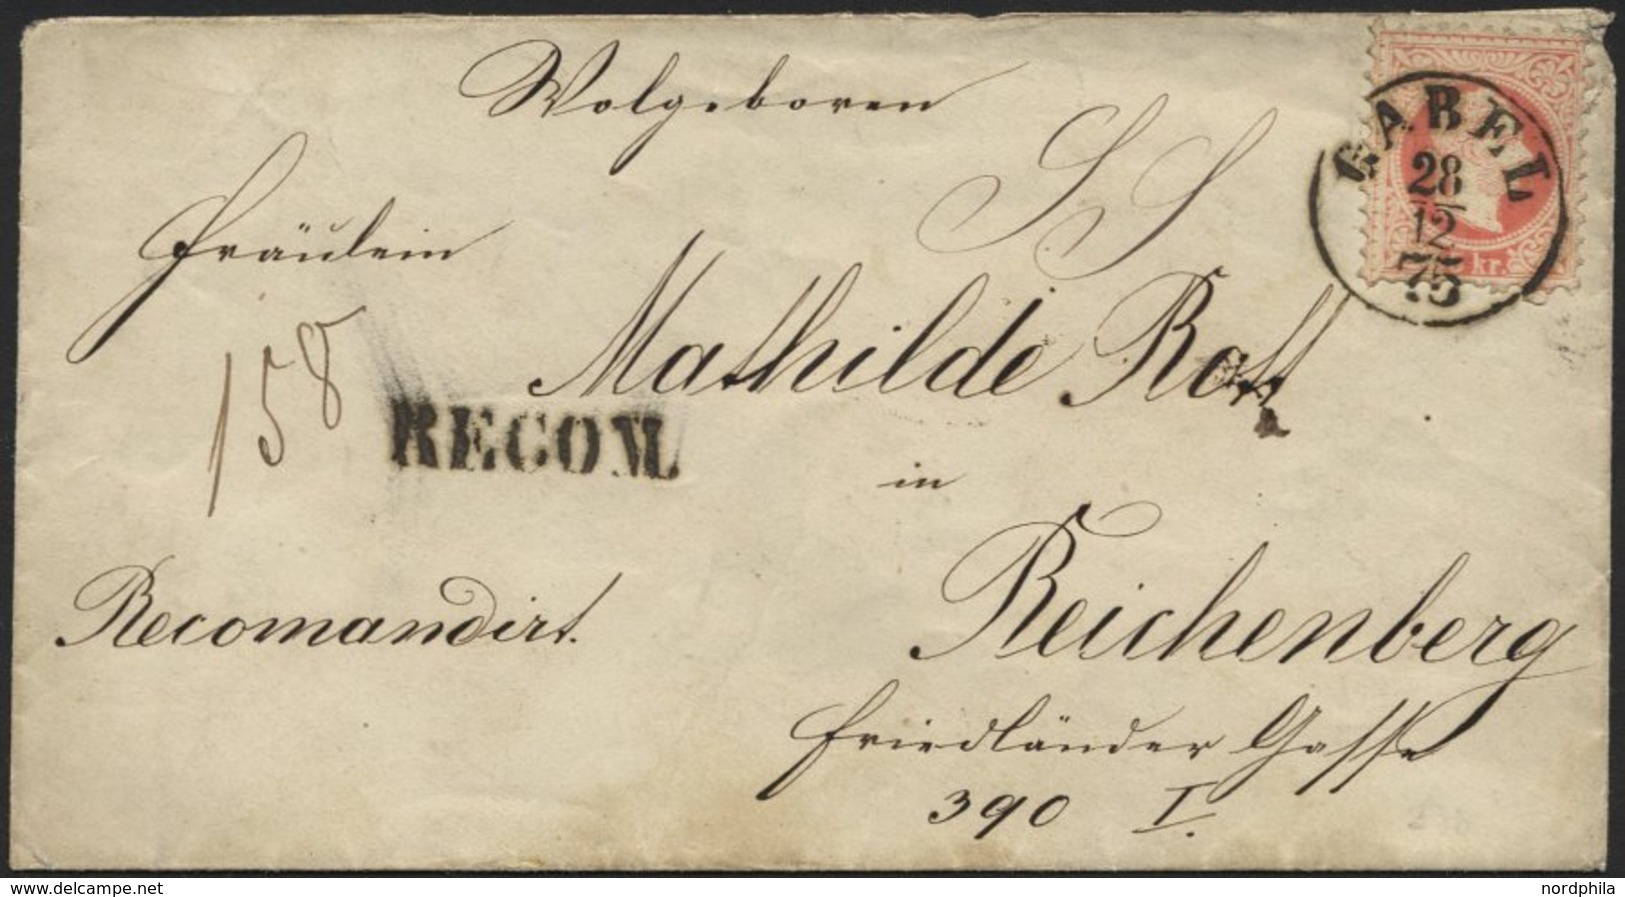 Wolgeboren
GABEL
28
12
75
kr.
SS
Fräulein
Mathilde Rott
158
RECOM.
in
Recomandirt.
Reichenberg
Friedländer Gasse
390 I.
www.delcampe.net
nordphila